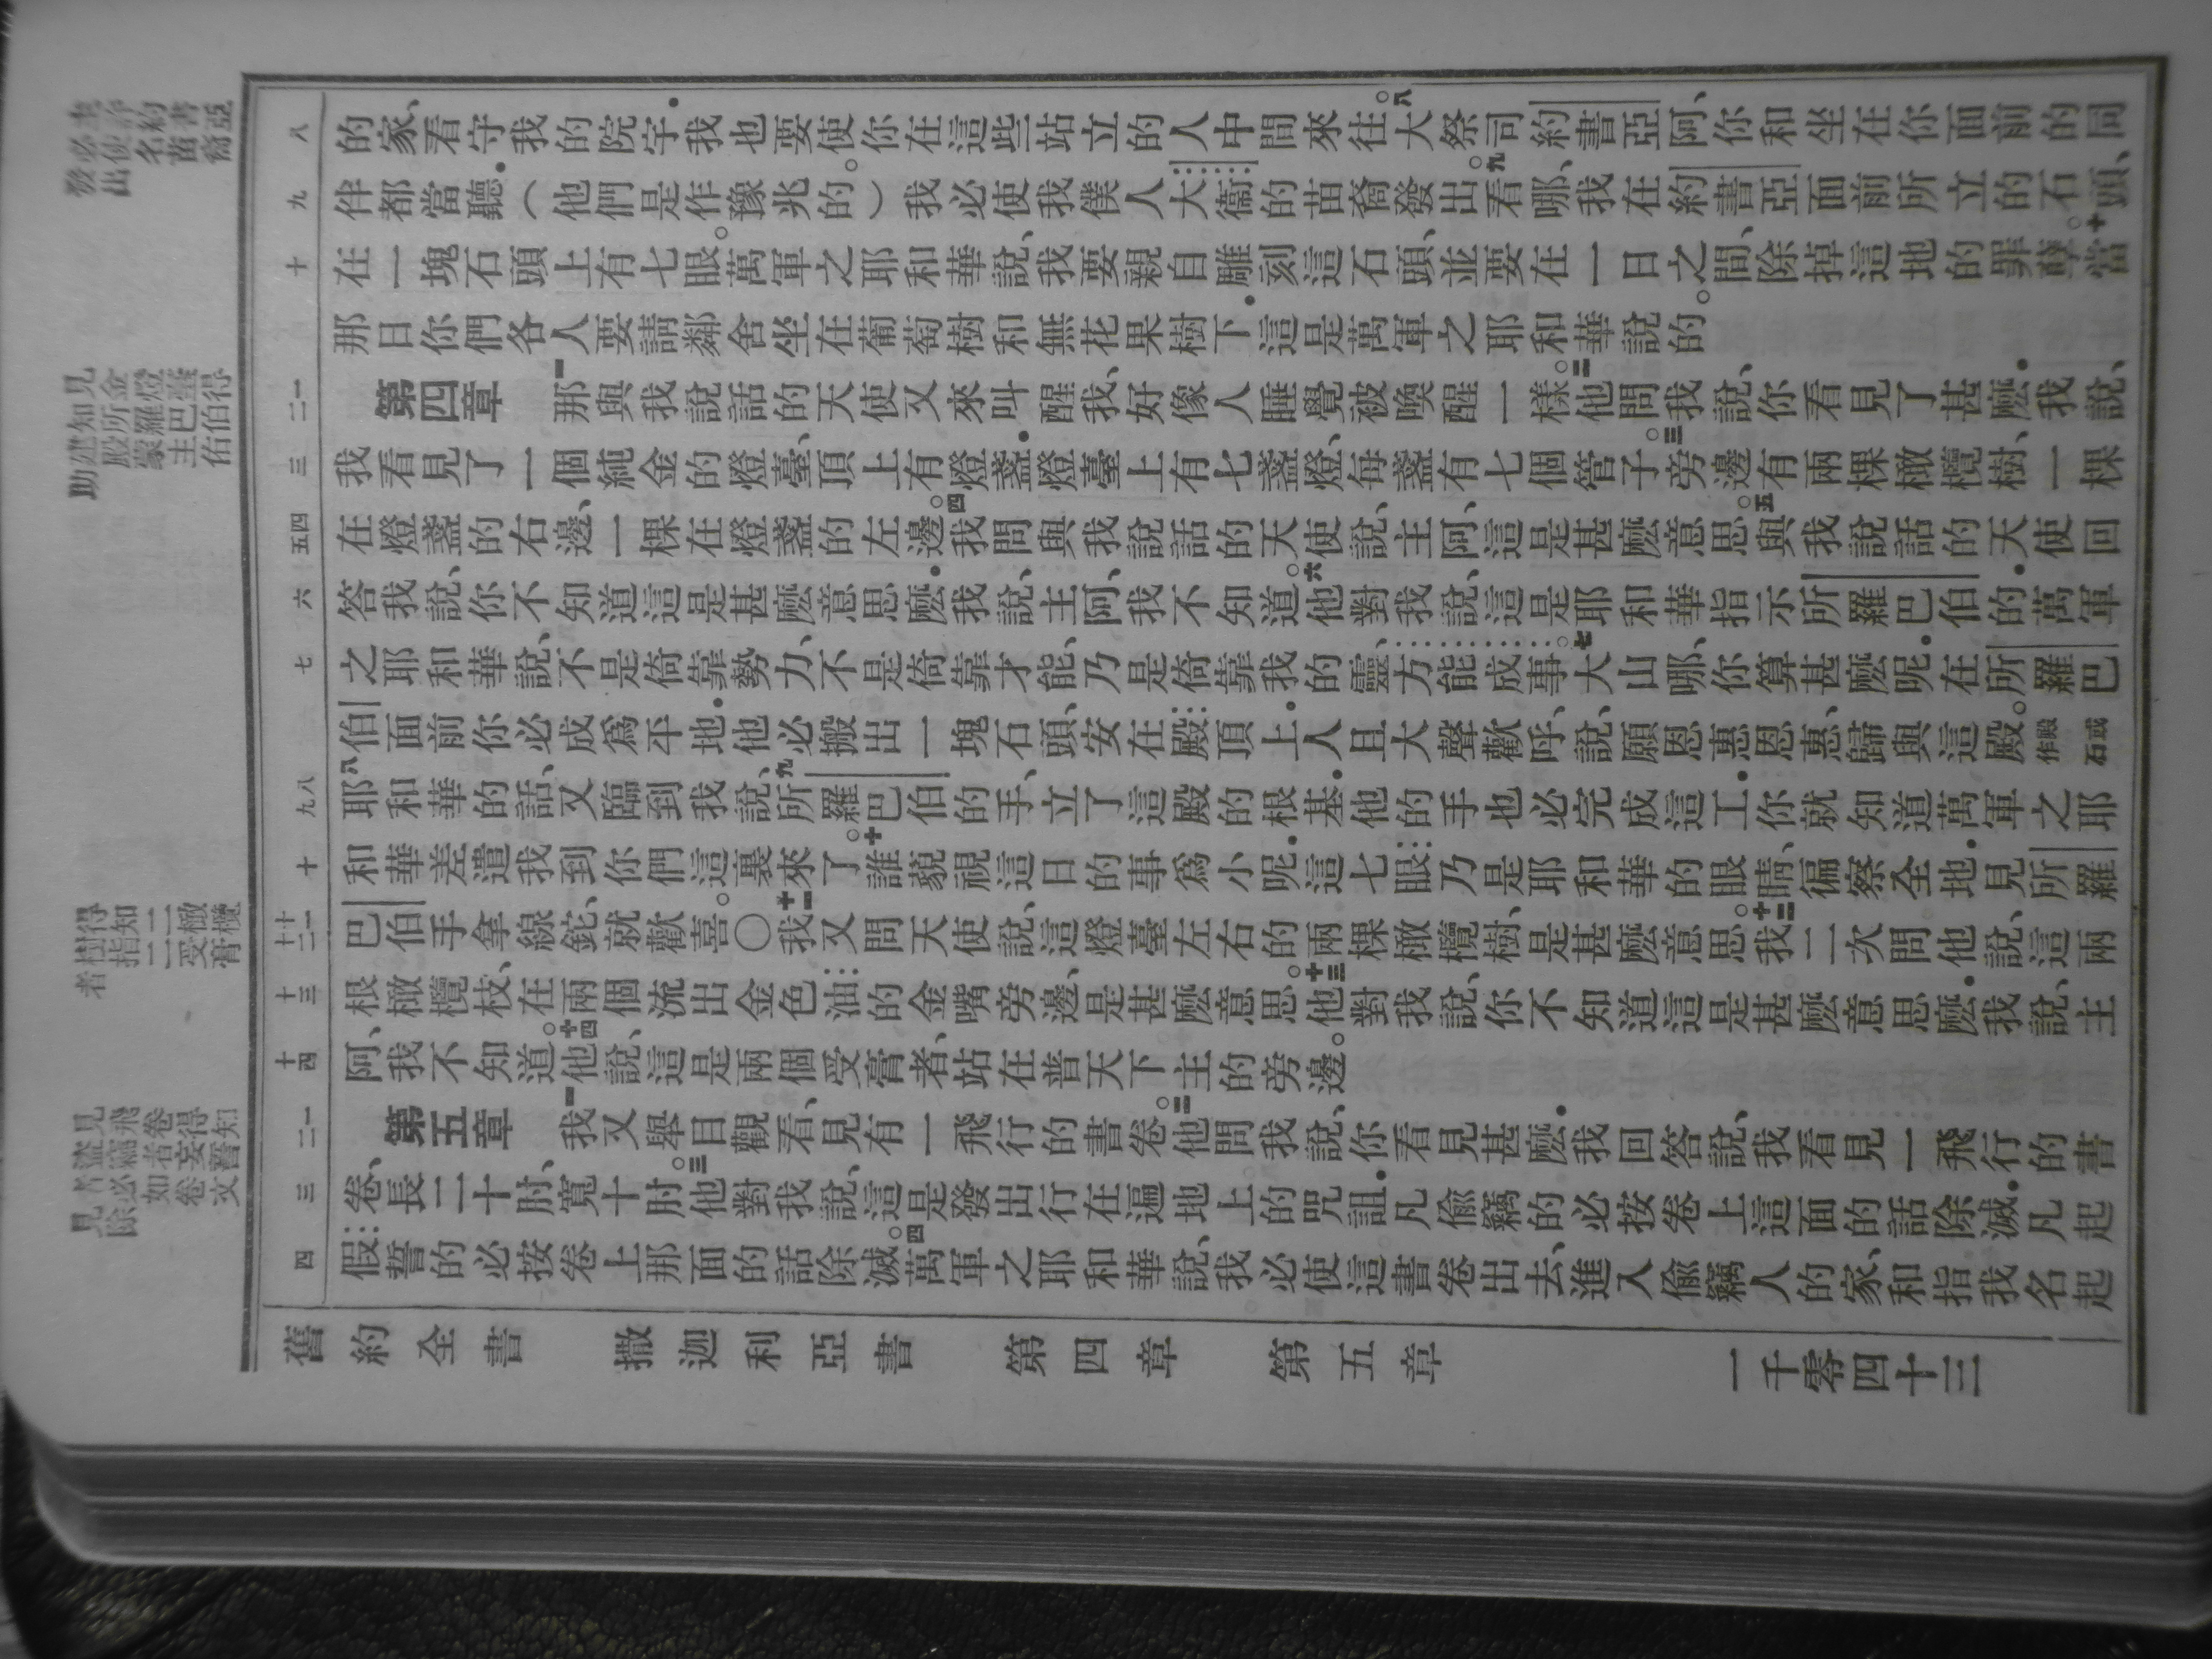 約書亞
必使名苗裔
發出
見金燈臺得
知所羅巴伯
建殿蒙主佑
助
得知二橄欖
樹指二受膏
者
見飛卷得知
盜竊者妄誓
者必如卷文
見除
八
九
十
一
二
三
四
五
六
七
八
九
十
十一
十二
十三
十四
一
二
三
四
的家、看守我的院宇．我也要使你在這些站立的人中間來往。八大祭司約書亞阿、你和坐在你面前的同
伴都當聽．（他們是作豫兆的。）我必使我僕人大衞的苗裔發出。九看哪、我在約書亞面前所立的石頭、
在一塊石頭上有七眼。萬軍之耶和華說、我要親自雕刻這石頭、並要在一日之間、除掉這地的罪孽。十當
那日你們各人要請鄰舍坐在葡萄樹和無花果樹下．這是萬軍之耶和華說的。
第四章　一那與我說話的天使又來叫醒我、好像人睡覺被喚醒一樣。二他問我說、你看見了甚麼．我說、
我看見了一個純金的燈臺、頂上有燈盞．燈臺上有七盞燈、每盞有七個管子。三旁邊有兩棵橄欖樹、一棵
在燈盞的右邊、一棵在燈盞的左邊。四我問與我說話的天使說、主阿、這是甚麼意思。五與我說話的天使回
答我說、你不知道這是甚麼意思麼．我說、主阿、我不知道。六他對我說、這是耶和華指示所羅巴伯的．萬軍
之耶和華說、不是倚靠勢力、不是倚靠才能、乃是倚靠我的靈、方能成事。七大山哪、你算甚麼呢．在所羅巴
伯面前你必成爲平地．他必搬出一塊石頭、安在殿頂上．人且大聲歡呼、說、願恩惠恩惠、歸與這殿。殿或作石
八耶和華的話、又臨到我說、九所羅巴伯的手、立了這殿的根基．他的手也必完成這工．你就知道萬軍之耶
和華差遣我到你們這裏來了。十誰藐視這日的事爲小呢．這七眼乃是耶和華的眼睛、徧察全地．見所羅
巴伯手拿線鉈、就歡喜。〇十一我又問天使說、這燈臺左右的兩棵橄欖樹、是甚麼意思。十二我二次問他說、這兩
根橄欖枝、在兩個流出金色油的金嘴旁邊、是甚麼意思。十三他對我說、你不知道這是甚麼意思麼．我說、主
阿、我不知道。十四他說、這是兩個受膏者、站在普天下主的旁邊。
第五章　一我又舉目觀看、見有一飛行的書卷。二他問我說、你看見甚麼．我回答說、我看見一飛行的書
卷、長二十肘、寬十肘。三他對我說、這是發出行在遍地上的咒詛．凡偷竊的必按卷上這面的話除滅．凡起
假誓的必按卷上那面的話除滅。四萬軍之耶和華說、我必使這書卷出去、進入偷竊人的家、和指我名起
舊約全書　撒迦利亞書　第四章　第五章　一千零四十三